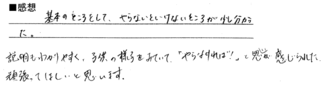 ■感想
基本のところをして、やらないといけないところが少し分かった。
説明もわかりやすく、子供の様子をみていて「やらなければ!」と感じられた
頑張ってほしいと思います。